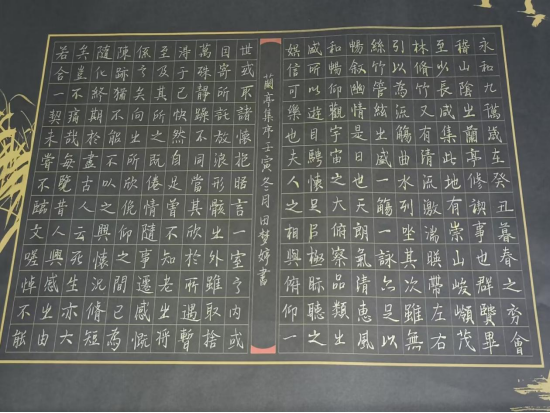 永和九年歲在癸丑暮春之初會
稽山陰之蘭亭修禊事也群賢畢
至少長咸集此地有崇山峻嶺茂
林脩竹又有清流激湍暎帶左右
引以為流觴曲水列坐其次雖無
絲竹管弦之盛一觴一詠亦足以
暢敘幽情是日也天朗氣清惠風
和暢仰觀宇宙之大俯察品類之
盛所以遊目騁懷足以極視聽之
娛信可樂也夫人之相與俯仰一
蘭亭集序壬寅冬月田梦婷書
世或取諸懷抱晤言一室之內或
因寄所託放浪形骸之外雖取捨
萬殊靜躁不同當其欣於所遇暫
得于己快然自足曾不知老之將
至及其所之既倦情隨事遷感慨
係之矣向之所欣俛仰之間已為
陳跡猶不能不以之興懷況脩短
隨化終期於盡古人云死生亦大
矣豈不痛哉每覽昔人興感之由
若合一契未嘗不臨文嗟悼不能